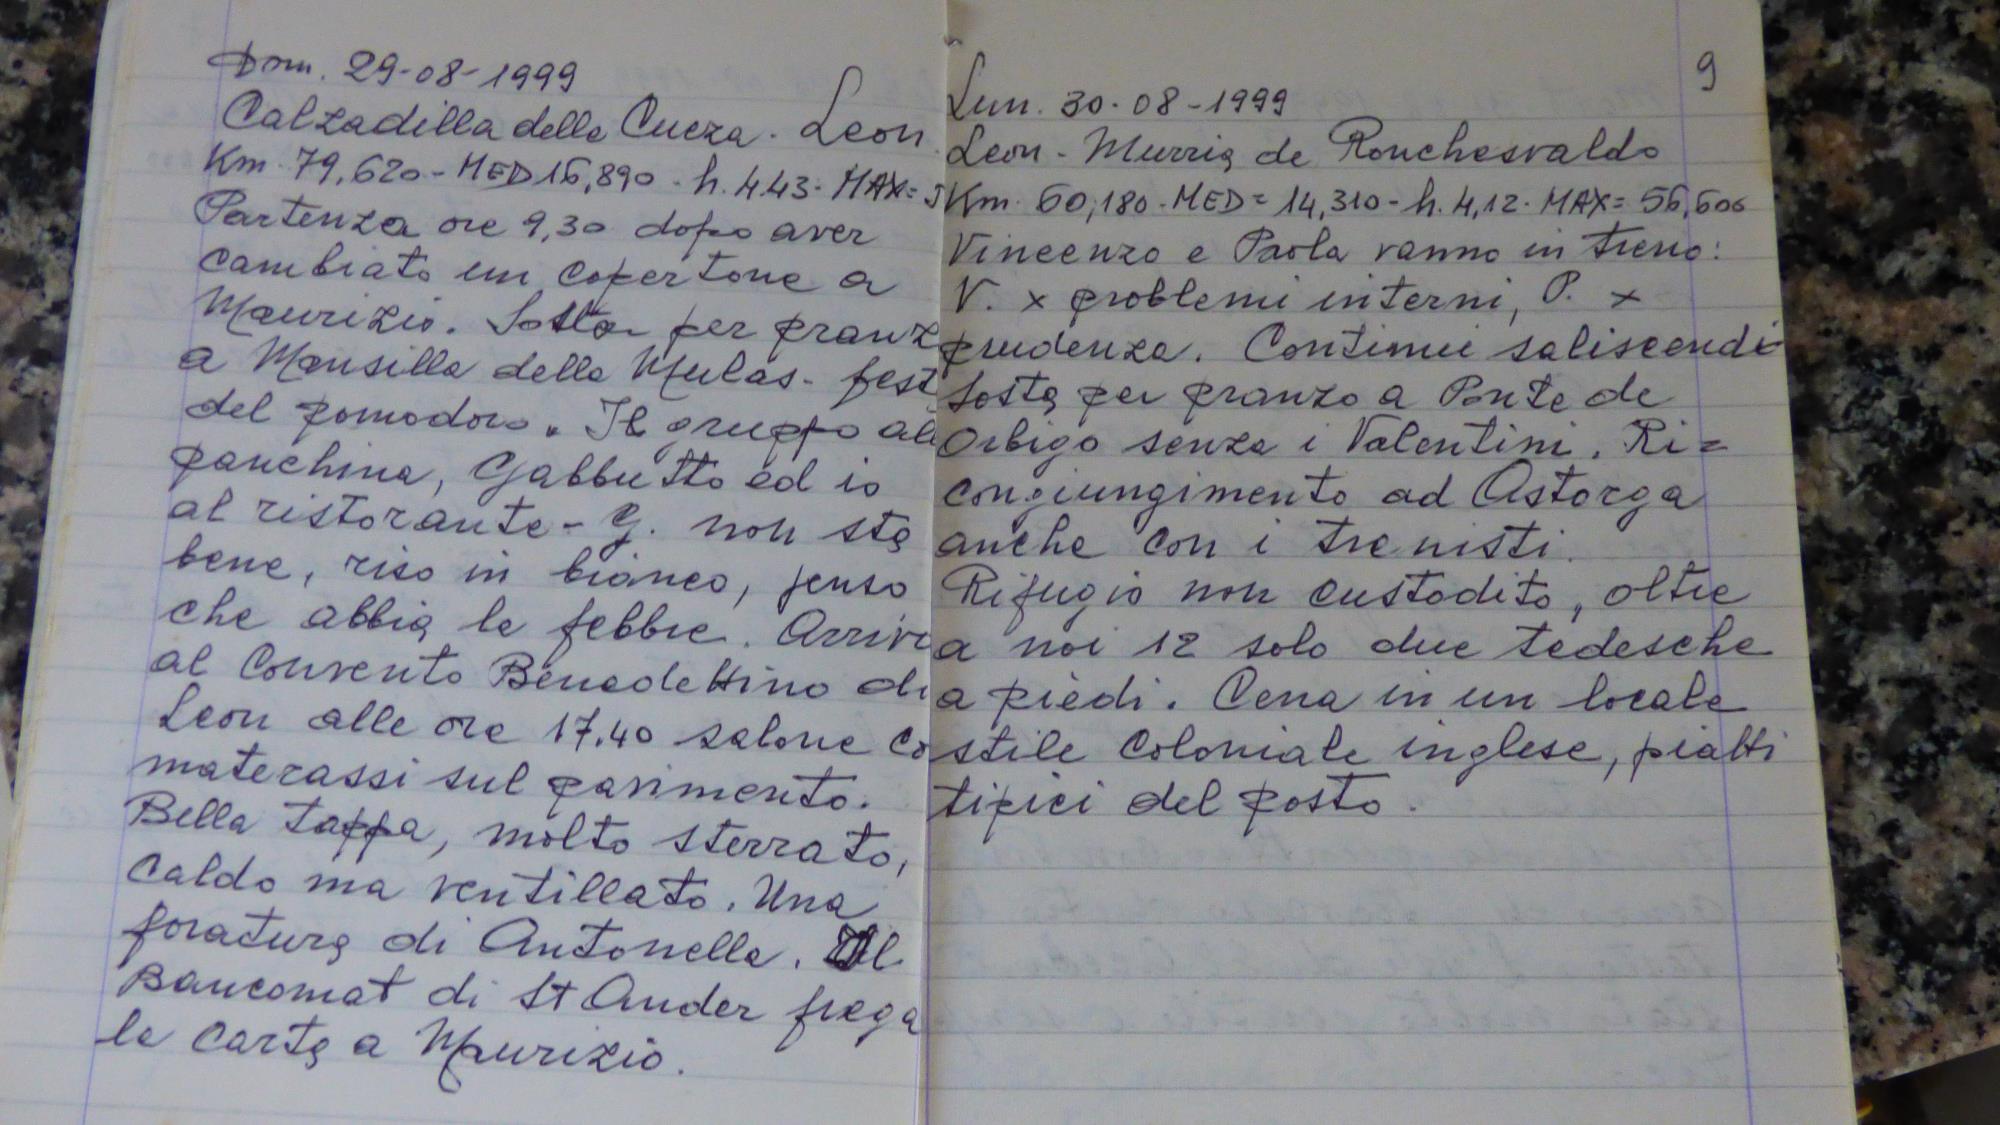 Dom. 29-08-1999
Calzadilla della Cueza. Leon
Km. 79,620 - MED 16,890 - h. 4.43. MAX=5
Partenza ore 9,30 dopo aver
cambiato un copertone a
Maurizio. Sosta per pranz
a Mansilla della Mulas - fest
del pomodoro. Il gruppo all
panchina, Gabbutto ed io
al ristorante - G. non sta
bene, riso in bianco, penso
che abbia la febbre. Arrivo
al Convento Benedettino di
Leon alle ore 17.40 salone co
materassi sul pavimento.
Bella tappa, molto sterrato,
caldo ma ventillato. Una
foratura di Antonella. Il
Bancomat di St Ander frega
la carta a Maurizio.
9
Lun. 30-08-1999
Leon - Murria de Ronchesvaldo
Km. 60,180 - MED = 14,310 - h. 4,12. MAX= 56,600
Vincenzo e Paola vanno in treno:
V. x problemi interni, P. x
prudenza. Continui saliscendi
Sosta per pranzo a Ponte de
Orbigo senza i Valentini. Ri=
congiungimento ad Astorga
anche con i trenisti.
Rifugio non custodito, oltre
a noi 12 solo due tedesche
a piedi. Cena in un locale
stile coloniale inglese, piatti
tipici del posto.